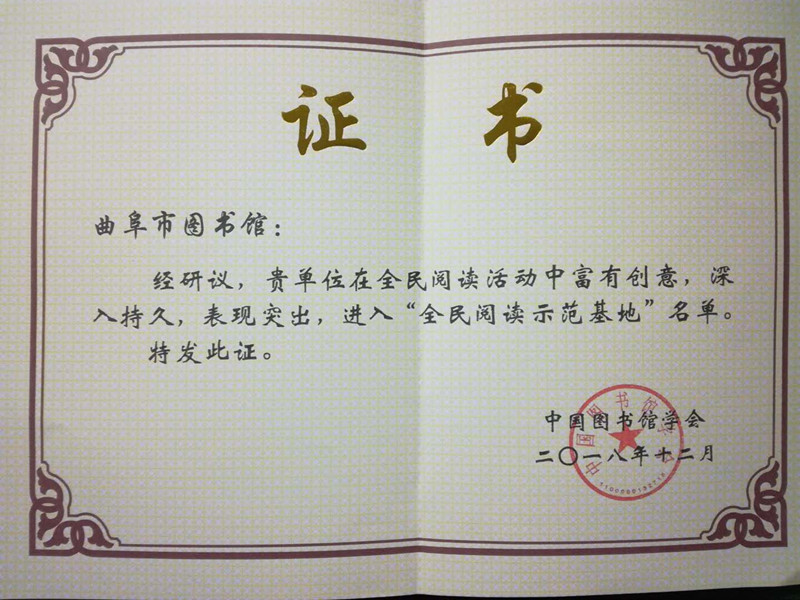 证 书
曲阜市图书馆：
经研议，贵单位在全民阅读活动中富有创意，深
入持久，表现突出，进入“全民阅读示范基地”名单。
特发此证。
中国图书馆学会
二〇一八年十二月
中国图书馆学会